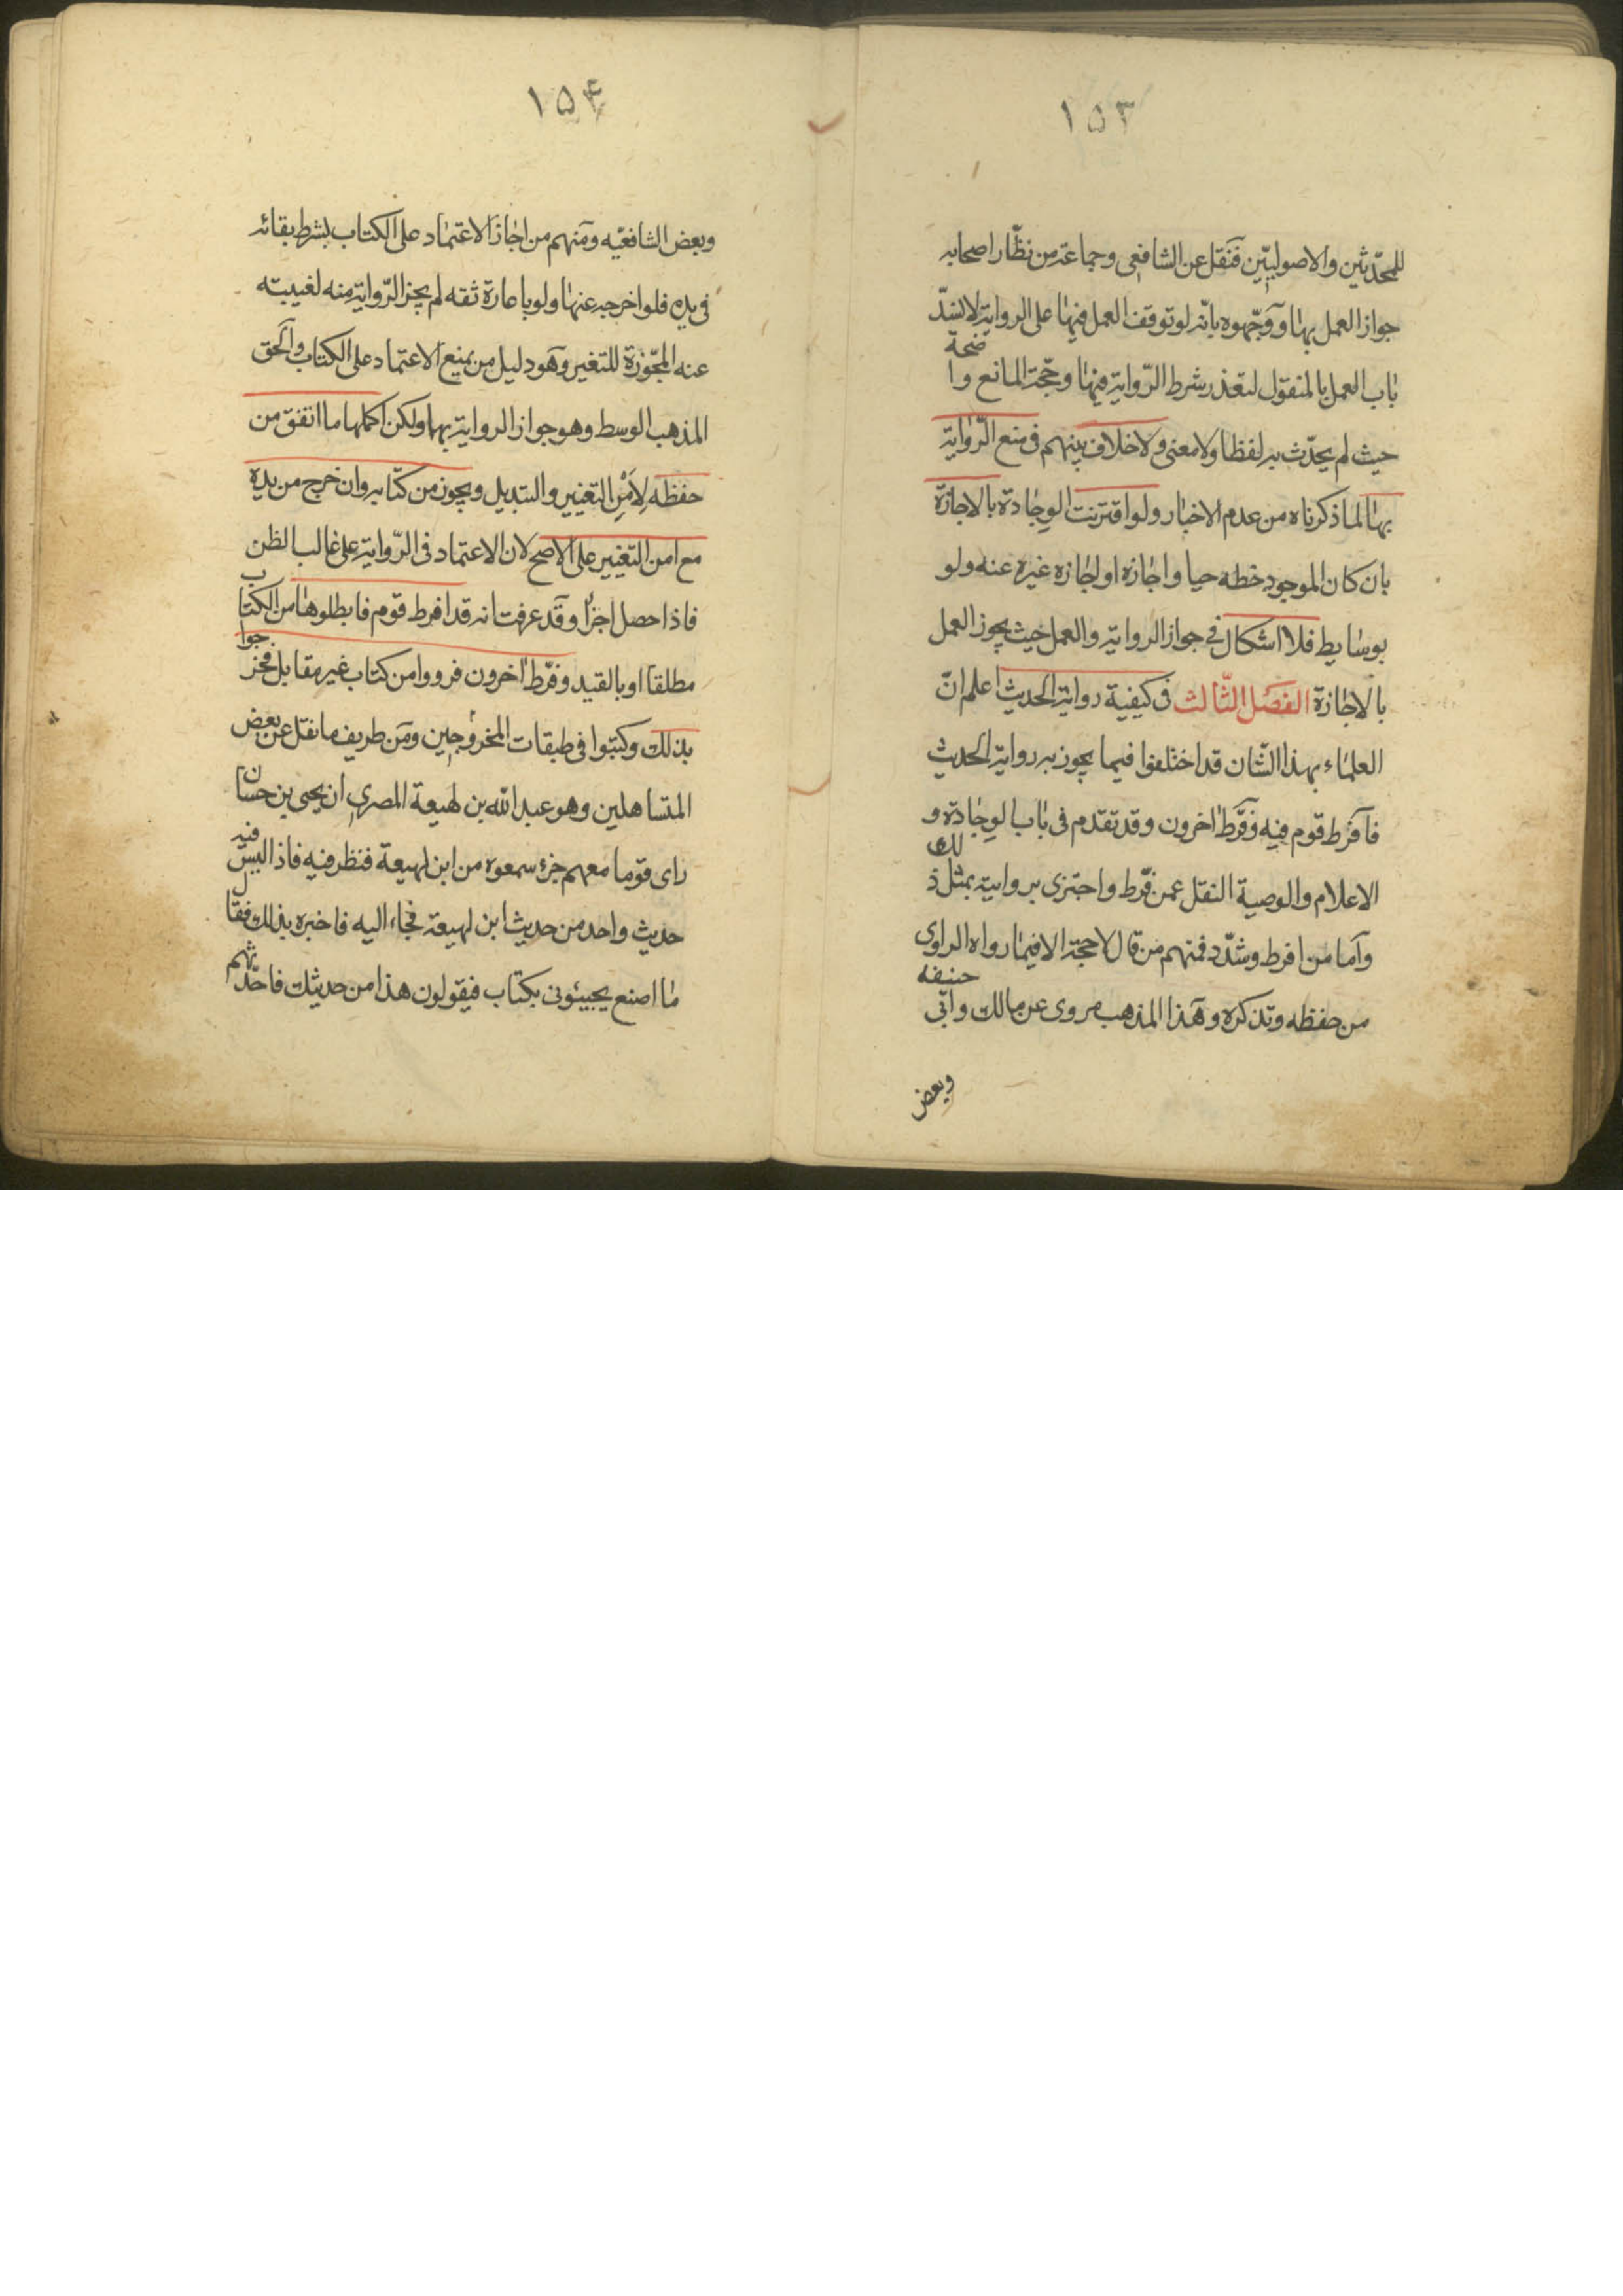 ١٥٣
للمحدّثين والاصوليّين فنقل عن الشافعى وجماعة من نظّار اصحابه
جواز العمل بها ووجّهوه بانّه لو توقف العمل فيها على الرواية لانسدّ
باب العمل بالمنقول لتعذر شرط الرّواية فيها وحجّة المانع واضحة
حيث لم يحدّث به لفظا ولا معنى ولا خلاف بينهم فى منع الرّواية
بها لما ذكرناه من عدم الاخبار ولو اقترنت الوجادة بالاجازة
بان كان الموجود خطه حيا واجازه او اجازه غيره عنه ولو
بوسايط فلا اشكال فى جواز الرواية والعمل حيث يجوز العمل
بالاجازة الفصل الثّالث فى كيفية رواية الحديث اعلم انّ
العلماء بهذا الشّان قد اختلفوا فيما يجوز به رواية الحديث
فآفرط قوم فيه وفرّط اخرون وقد تقدم فى باب الوجادة و
الاعلام والوصية النقل عمن فرّط واجتزى بروايته بمثل ذلك
وآما من افرط وشدّد فمنهم من قال لا حجة الا فيما رواه الراوى
من حفظه وتذكره وهذا المذهب مروى عن مالك وابى حنيفه
وبعض
١٥٤
وبعض الشافعيّه ومنهم من اجاز الاعتماد على الكتاب بشرط بقائه
فى يده فلو اخرجه عنها ولو باعارة ثقه لم يجز الرّواية منه لغيبته
عنه المجّوزة للتغير وهو دليل من يمنع الاعتماد على الكتاب والحق
المذهب الوسط وهو جواز الرواية بهما ولكن اكملها ما اتفق من
حفظه لِاَمْنِ التغيير والتبديل ويجوز من كتابه وان خرج من يده
مع امن التغيير على الاصح لان الاعتماد فى الرّواية على غالب الظن
فاذا حصل اجزا وقد عرفت انه قد افرط قوم فابطلوها من الكتاب
مطلقا او بالقيد وفرّط اخرون فرووا من كتاب غير مقابل فجرحوا
بذلك وكتبوا فى طبقات المجروحين ومن طريف ما نقل عن بعض
المتساهلين وهو عبد الله بن لهيعة المصرى ان يحيى بن حسان
راى قوما معهم جزء سمعوه من ابن لهيعة فنظر فيه فاذا ليس فيه
حديث واحد من حديث ابن لهيعة فجاء اليه فاخبره بذلك فقال
ما اصنع يجيئونى بكتاب فيقولون هذا من حديثك فاحدّثهم